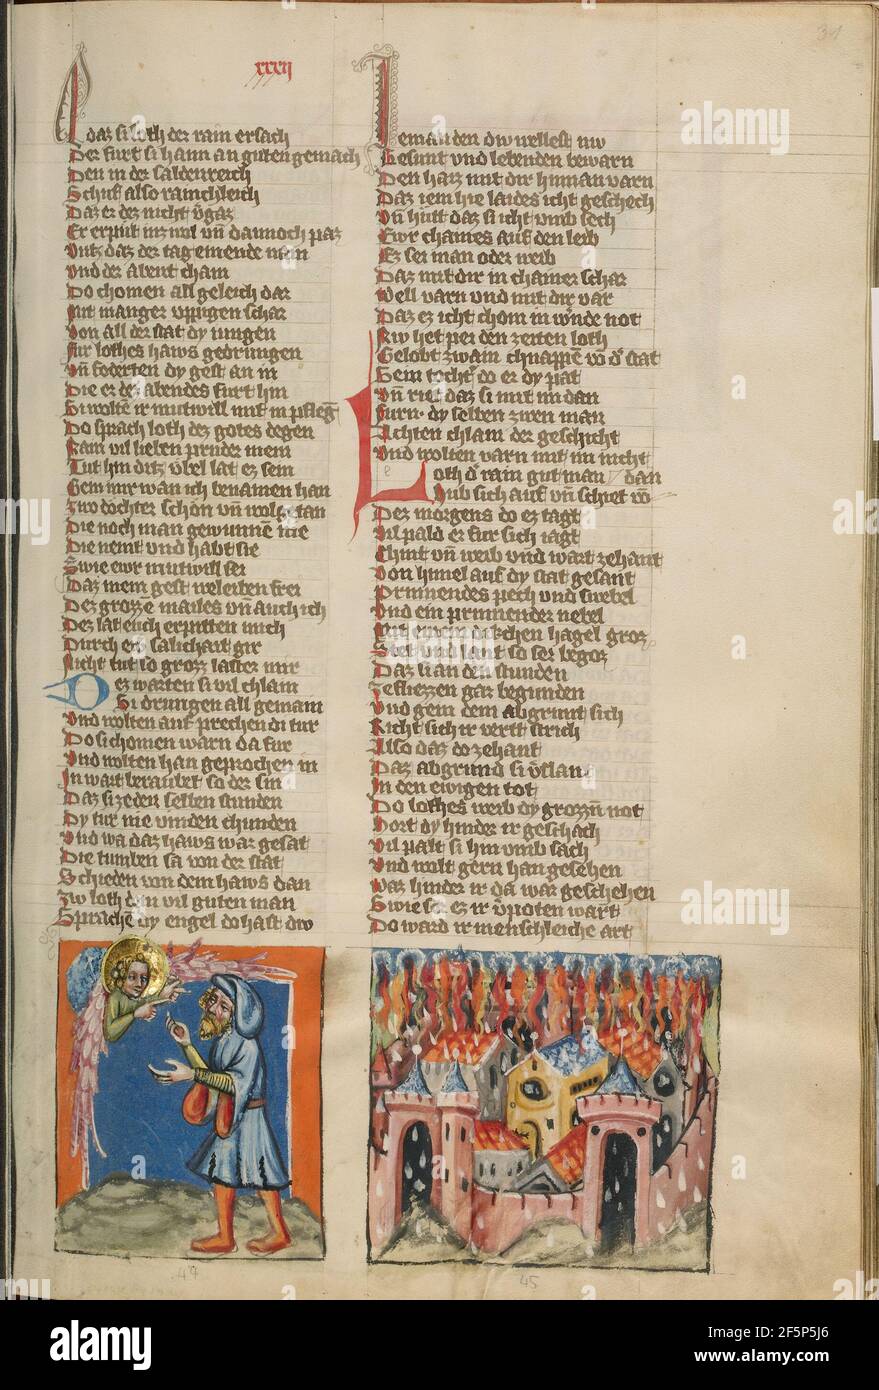 xxxij
34
Do daz si loth der rain ersach
Der furt si hann an guten gemach
Den in der saldenreich
Schuf also rainchleich
Daz er dez nicht vgaz
Er erpitt inz wol vn dannoch paz
Vntz daz der tag emende nam
Vnd der abent cham
Do chomen all geleich dar
Mit manger vppigen schar
Von all der stat dy iungen
Fur lothes haws gedrungen
Vn foderten dy gest an in
Die er dez abendes furt hin
Si wolten ir mutwill mit in pflegen
Do sprach loth dez gotes degen
Nain vil lieben pruder mein
Tut hin ditz vbel lat ez sein
Gem mir wan ich benamen han
Zwo dochter schon vn wolgetan
Die noch man gewunnen nie
Die nemt vnd habt sie
Swie ewr mutwill sei
Daz mein gest weleiben frei
Dez grozze mailes vn auch ich
Dez lat euch erpitten mich
Durch ewr salichait gir
Nicht tut so grozz laster mir
Dez warten si vil chlain
Si drungen all gemain
Vnd wolten auf prechen di tur
Do si chomen warn da fur
Vnd wolten han geprochen in
In wart beraubet so der sin
Daz si ze den selben stunden
Dy tur nie vinden chunden
Vnd wa daz haws war gesat
Die tumben sa von der stat
Schieden von dem haws dan
Zw loth dem vil guten man
Sprachen dy engel do hast dw
Iemanden dw wellest nw
Gesunt vnd lebenden bewarn
Den haiz mit dir hinnan varn
Daz iem hie laides icht geschech
Vn hutt daz si icht vmb sech
Ewr chaines auf den leib
Ez sei man oder weib
Daz mit dir in chainer schar
Well varn vnd mit dir var
Daz ez icht chom in wernde not
Nw het pei den zeiten loth
Gelobt zwain chnappen von der stat
Sein tochter do er dy pat
Vn rief daz si mit im dan
Furn dy selben zwen man
Achten chlain der geschicht
Vnd wolten varn mit im nicht
Loth der rain gut man
Hub sich auf vn schiet von dan
Dez morgens do ez tagt
Vil pald er fur sich iagt
Chint vn weib vnd wart zehant
Von himel auf dy stat gesant
Prinnendes pech vnd swebel
Vnd ein prinnender nebel
Mit einem dikchen hagel groz
Stet vnd lant so ser begoz
Daz si an den stunden
Zefliezzen gar begunden
Vnd gein dem abgrunt sich
Richt sich ir vertt strich
Also daz do zehant
Daz abgrund si vslant
In den ewigen tot
Do lothes weib dy grozzen not
Hort dy hinder ir geschach
Vil palt si him vmb sach
Vnd wolt gern han gesehen
Waz hinder ir da war geschehen
Swie ser ez ir vpoten wart
Do ward ir menschleiche art
e
44
45
alamy
alamy
Image ID: 2F5P5J6
www.alamy.com